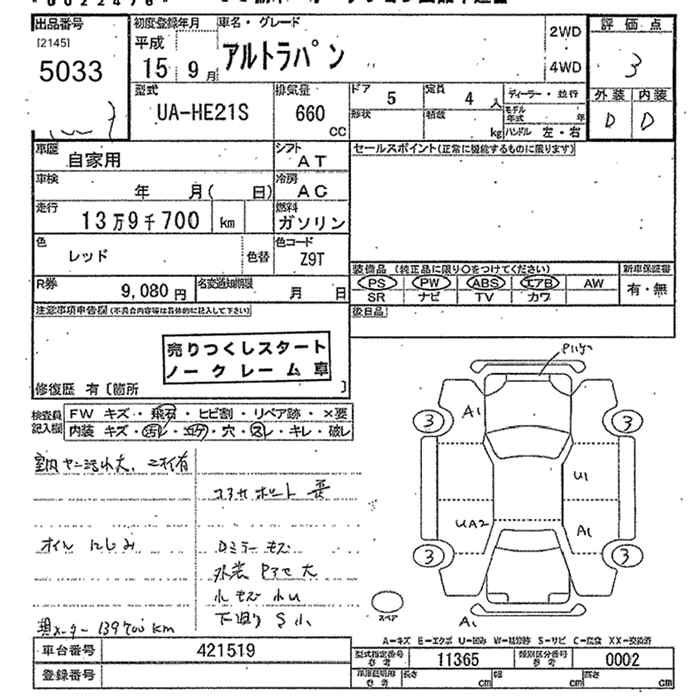 出品番号
[2145]
5033
初度登録年月
平成
15 9月
車名・グレード
アルトラパン
2WD
4WD
評価点
3
外装 内装
D D
型式
UA-HE21S
排気量
660
cc
ドア
5
定員
4 人
形状
積載
kg
ディーラー・並行
モデル年式 年
ハンドル 左・右
車歴
自家用
シフト
AT
セールスポイント(正常に機能するものに限ります)
車検
年 月( 日)
冷房
AC
走行
13万9千700 km
燃料
ガソリン
色
レッド
色替
色コード
Z9T
R券
9,080 円
名変通知期限
月 日
装備品 (純正品に限り○をつけてください)
PS PW ABS エアB AW
SR ナビ TV カワ
新車保証書
有・無
後日品
注意事項申告欄(不具合内容等は具体的に記入して下さい)
売りつくしスタート
ノークレーム車
修復歴 有[箇所 ]
検査員記入欄
FW キズ・飛石・ヒビ割・リペア跡・×要
内装 キズ・汚レ・コゲ・穴・スレ・キレ・破レ
オイルにじみ
Dミラーキズ
下廻りS小
奥メーター 139700km
A1
3
3
U1
UA2
A1
3
3
スペア
A1
A-キズ E-エクボ U-凹み W-補修跡 S-サビ C-腐食 XX-交換済
車台番号
421519
登録番号
型式指定番号
参考
11365
類別区分番号
参考
0002
長さ cm
幅 cm
高さ cm